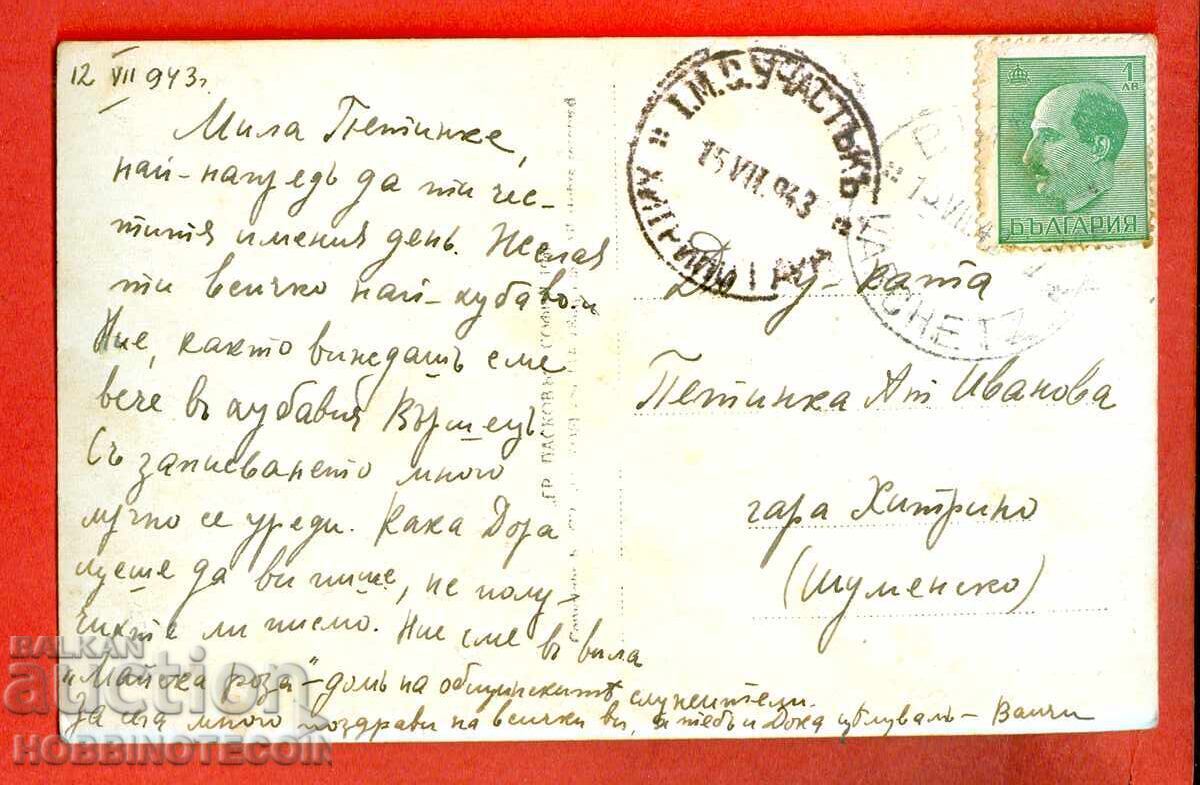 12 VII 943г.
Мила Петинке,
най-напредъ да ти чес-
титя имения день. Желая
ти всичко най-хубаво.
Ние, както виждашъ сме
вече въ хубавия Вършецъ.
Съ записването много
лучно се уреди. Кака Дора
щеше да ви пише, не полу-
чихте ли писмо. Ние сме въ вила
"Майска роза" - домъ на общинскитѣ служители.
За сега много поздрави на всички ви, а тебъ и Дока цѣлувамъ - Ванчи
Д-ца
Петинка Ат Иванова
гара Хитрино
(Шуменско)
I.М.С.УЧАСТЪКЪ
15 VII. 943
VARCHETZ
1
ЛВ
БЪЛГАРИЯ
ГР. ПАСКОВЪ
BALKAN
auction
HOBBINOTECOIN